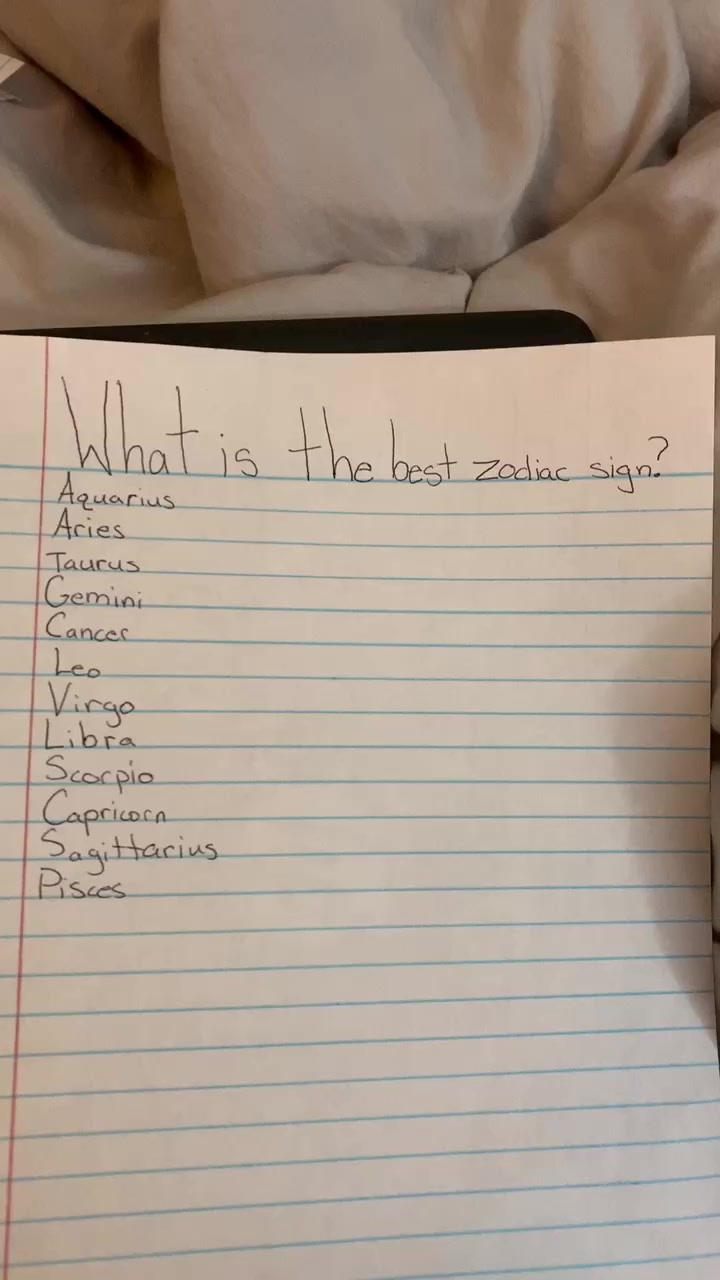 What is the best zodiac sign?
Aquarius
Aries
Taurus
Gemini
Cancer
Leo
Virgo
Libra
Scorpio
Capricorn
Sagittarius
Pisces